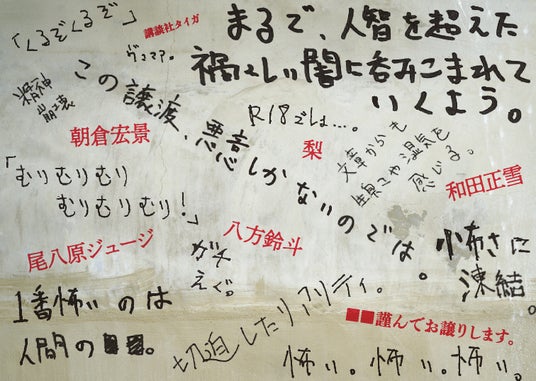 「くるぞくるぞ」
講談社タイガ
ヴェェア。
まるで、人智を超えた
禍々しい闇に呑みこまれて
いくよう。
精神
崩壊
この譲渡、悪意しかないのでは。
R18でしょ…。
朝倉宏景
梨
文章からも
生臭さや湿気を
感じる。
和田正雪
「むりむりむり
むりむりむり！」
尾八原ジュージ
八方鈴斗
ガチ
えぐ。
小怖さに
凍結。
1番怖いのは
人間の■■。
切迫したリアリティ。
■■謹んでお譲りします。
怖い。怖い。怖い。